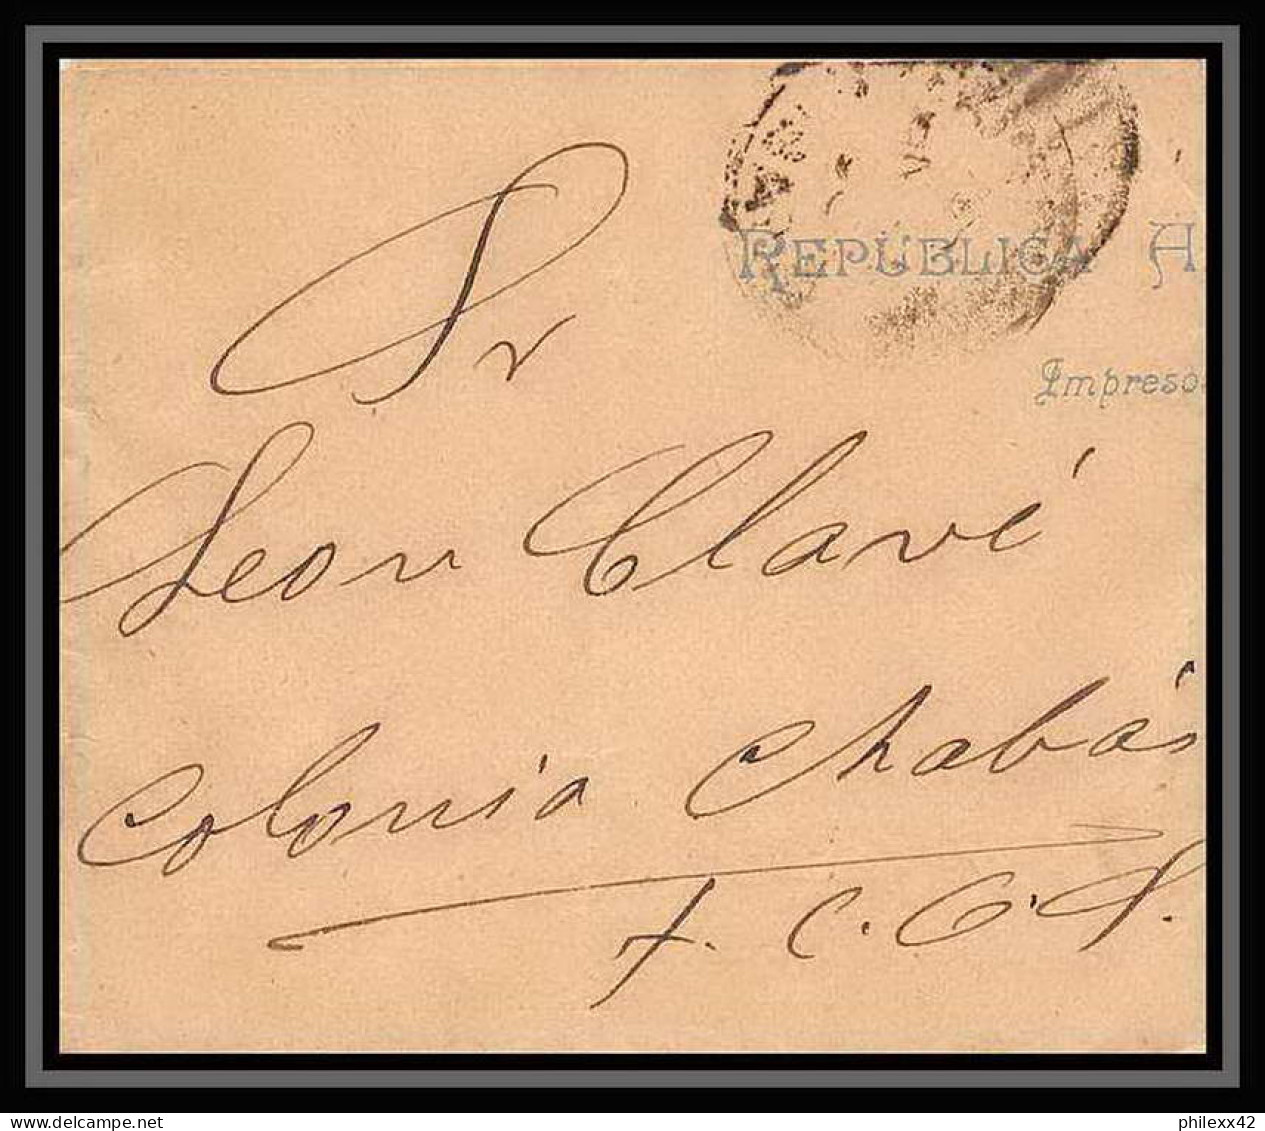 REPÚBLICA A
Impresos
Sr
Leon Clavé
Colonia Chabás
F. C. O. S.
delcampe.net
philexx42